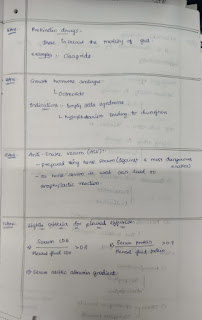 Note:
Prokinetic drugs:-
These increase the motility of gut
Example:- Cisapride
Note:
Growth hormone analogue
Indications:- Empty sella syndrome
↳ Hypothalamism leading to dwarfism
Note:
Anti-Snake venom (ASV):-
- prepared by horse serum (against 4 most dangerous snakes)
- As horse serum is used can lead to anaphylactic reaction.
Note:
Light's criteria for pleural effusion
① Serum LDH
Pleural fluid LDH
② Serum protein
Pleural fluid protein
③ Serum ascitic albumin gradient